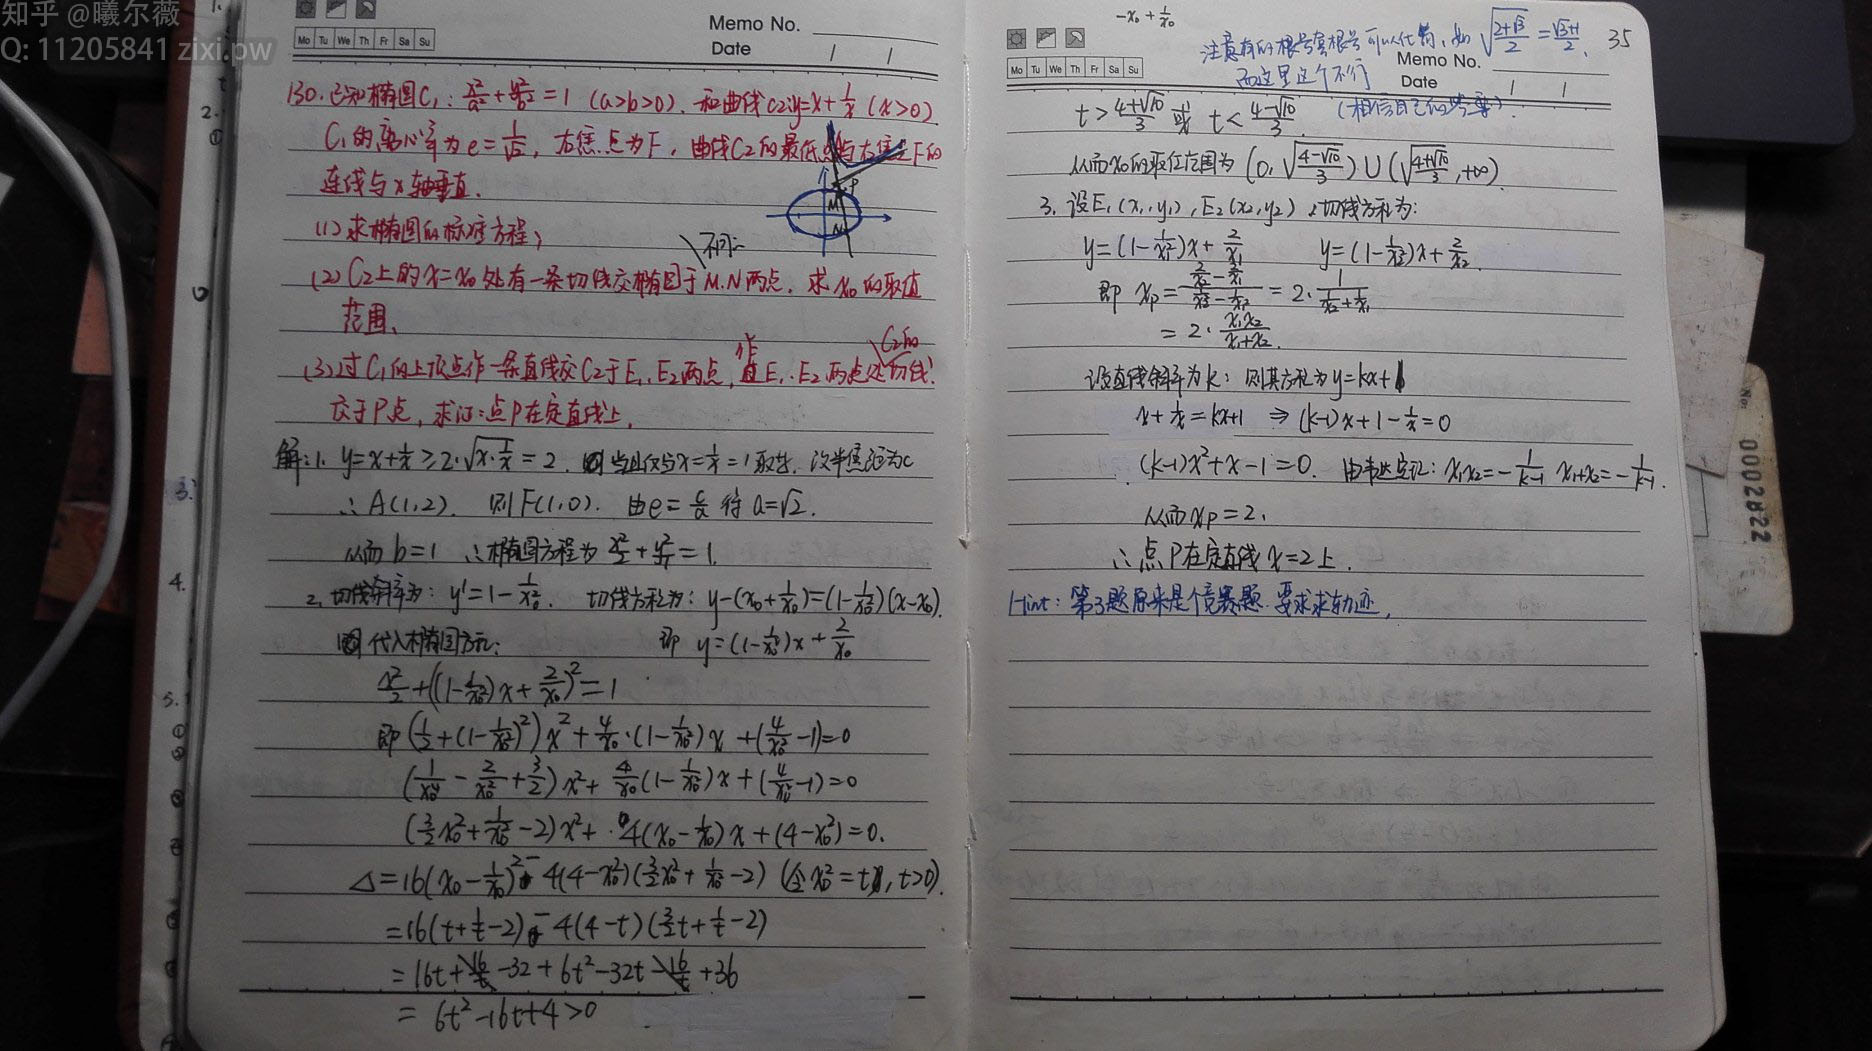 知乎 @曦尔薇
Q: 11205841 zixi.pw
Memo No.
Mo Tu We Th Fr Sa Su
Date / /
130. 已知椭圆C₁: x²/a² + y²/b² = 1 (a>b>0). 和曲线C2: y=x+1/x (x>0)
C₁的离心率为e=1/√2, 右焦点为F, 曲线C2的最低点与右焦点F的
连线与x轴垂直.
(1) 求椭圆的标准方程;
不同
(2) C₂上的x=x₀处有一条切线交椭圆于M.N两点. 求x₀的取值
范围.
作 C₂的
(3) 过C₁的上顶点作一条直线交C2于E₁.E₂两点, E₁.E₂两点处切线
交于P点, 求证:点P在定直线上.
P
M
N
解:1. y=x+1/x ≥ 2·√(x·1/x) = 2. 当且仅当x=1/x=1取等. 设半焦距为c
∴ A(1,2). 则F(1,0). 由e=c/a得a=√2.
从而b=1 ∴椭圆方程为 x²/2 + y²/1 = 1.
2. 切线斜率为: y'=1-1/x₀². 切线方程为: y-(x₀+1/x₀)=(1-1/x₀²)(x-x₀).
代入椭圆方程: 即 y=(1-1/x₀²)x+2/x₀
x²/2+((1-1/x₀²)x+2/x₀)²=1
即(1/2+(1-1/x₀²)²)x²+4/x₀·(1-1/x₀²)x+(4/x₀²-1)=0
(1/x₀⁴-2/x₀²+3/2)x²+4/x₀(1-1/x₀²)x+(4/x₀²-1)=0
(3/2x₀²+1/x₀²-2)x²+4(x₀-1/x₀)x+(4-x₀²)=0.
Δ=16(x₀-1/x₀)²-4(4-x₀²)(3/2x₀²+1/x₀²-2) (令x₀²=t, t>0).
=16(t+1/t-2)-4(4-t)(3/2t+1/t-2)
=16t+16/t-32+6t²-32t-16/t+36
= 6t²-16t+4>0
-x₀+1/x₀
注意有的根号套根号可以化简, 如 √((2+√3)/2) = (√3+1)/2.
而这里这个不行
(相信自己的答案)
35
Memo No.
Mo Tu We Th Fr Sa Su
Date / /
t>(4+√10)/3 或 t<(4-√10)/3.
从而x₀的取值范围为(0,√((4-√10)/3))∪(√((4+√10)/3),+∞).
3. 设E₁(x₁,y₁), E₂(x₂,y₂) 切线方程为:
y=(1-1/x₁²)x+2/x₁ y=(1-1/x₂²)x+2/x₂.
即 xp=(2/x₂-2/x₁)/(1/x₂²-1/x₁²)=2·1/(1/x₂+1/x₁)
=2·x₁x₂/(x₁+x₂).
设直线斜率为k: 则其方程为y=kx+1
x+1/x=kx+1 ⇒ (k-1)x+1-1/x=0
(k-1)x²+x-1=0. 由韦达定理: x₁x₂=-1/(k-1) x₁+x₂=-1/(k-1).
从而xp=2.
∴点P在定直线x=2上.
Hint: 第3题原来是个竞赛题. 要求求轨迹.
No:
0002822
2.
①
3.
4.
5.
①
②
③